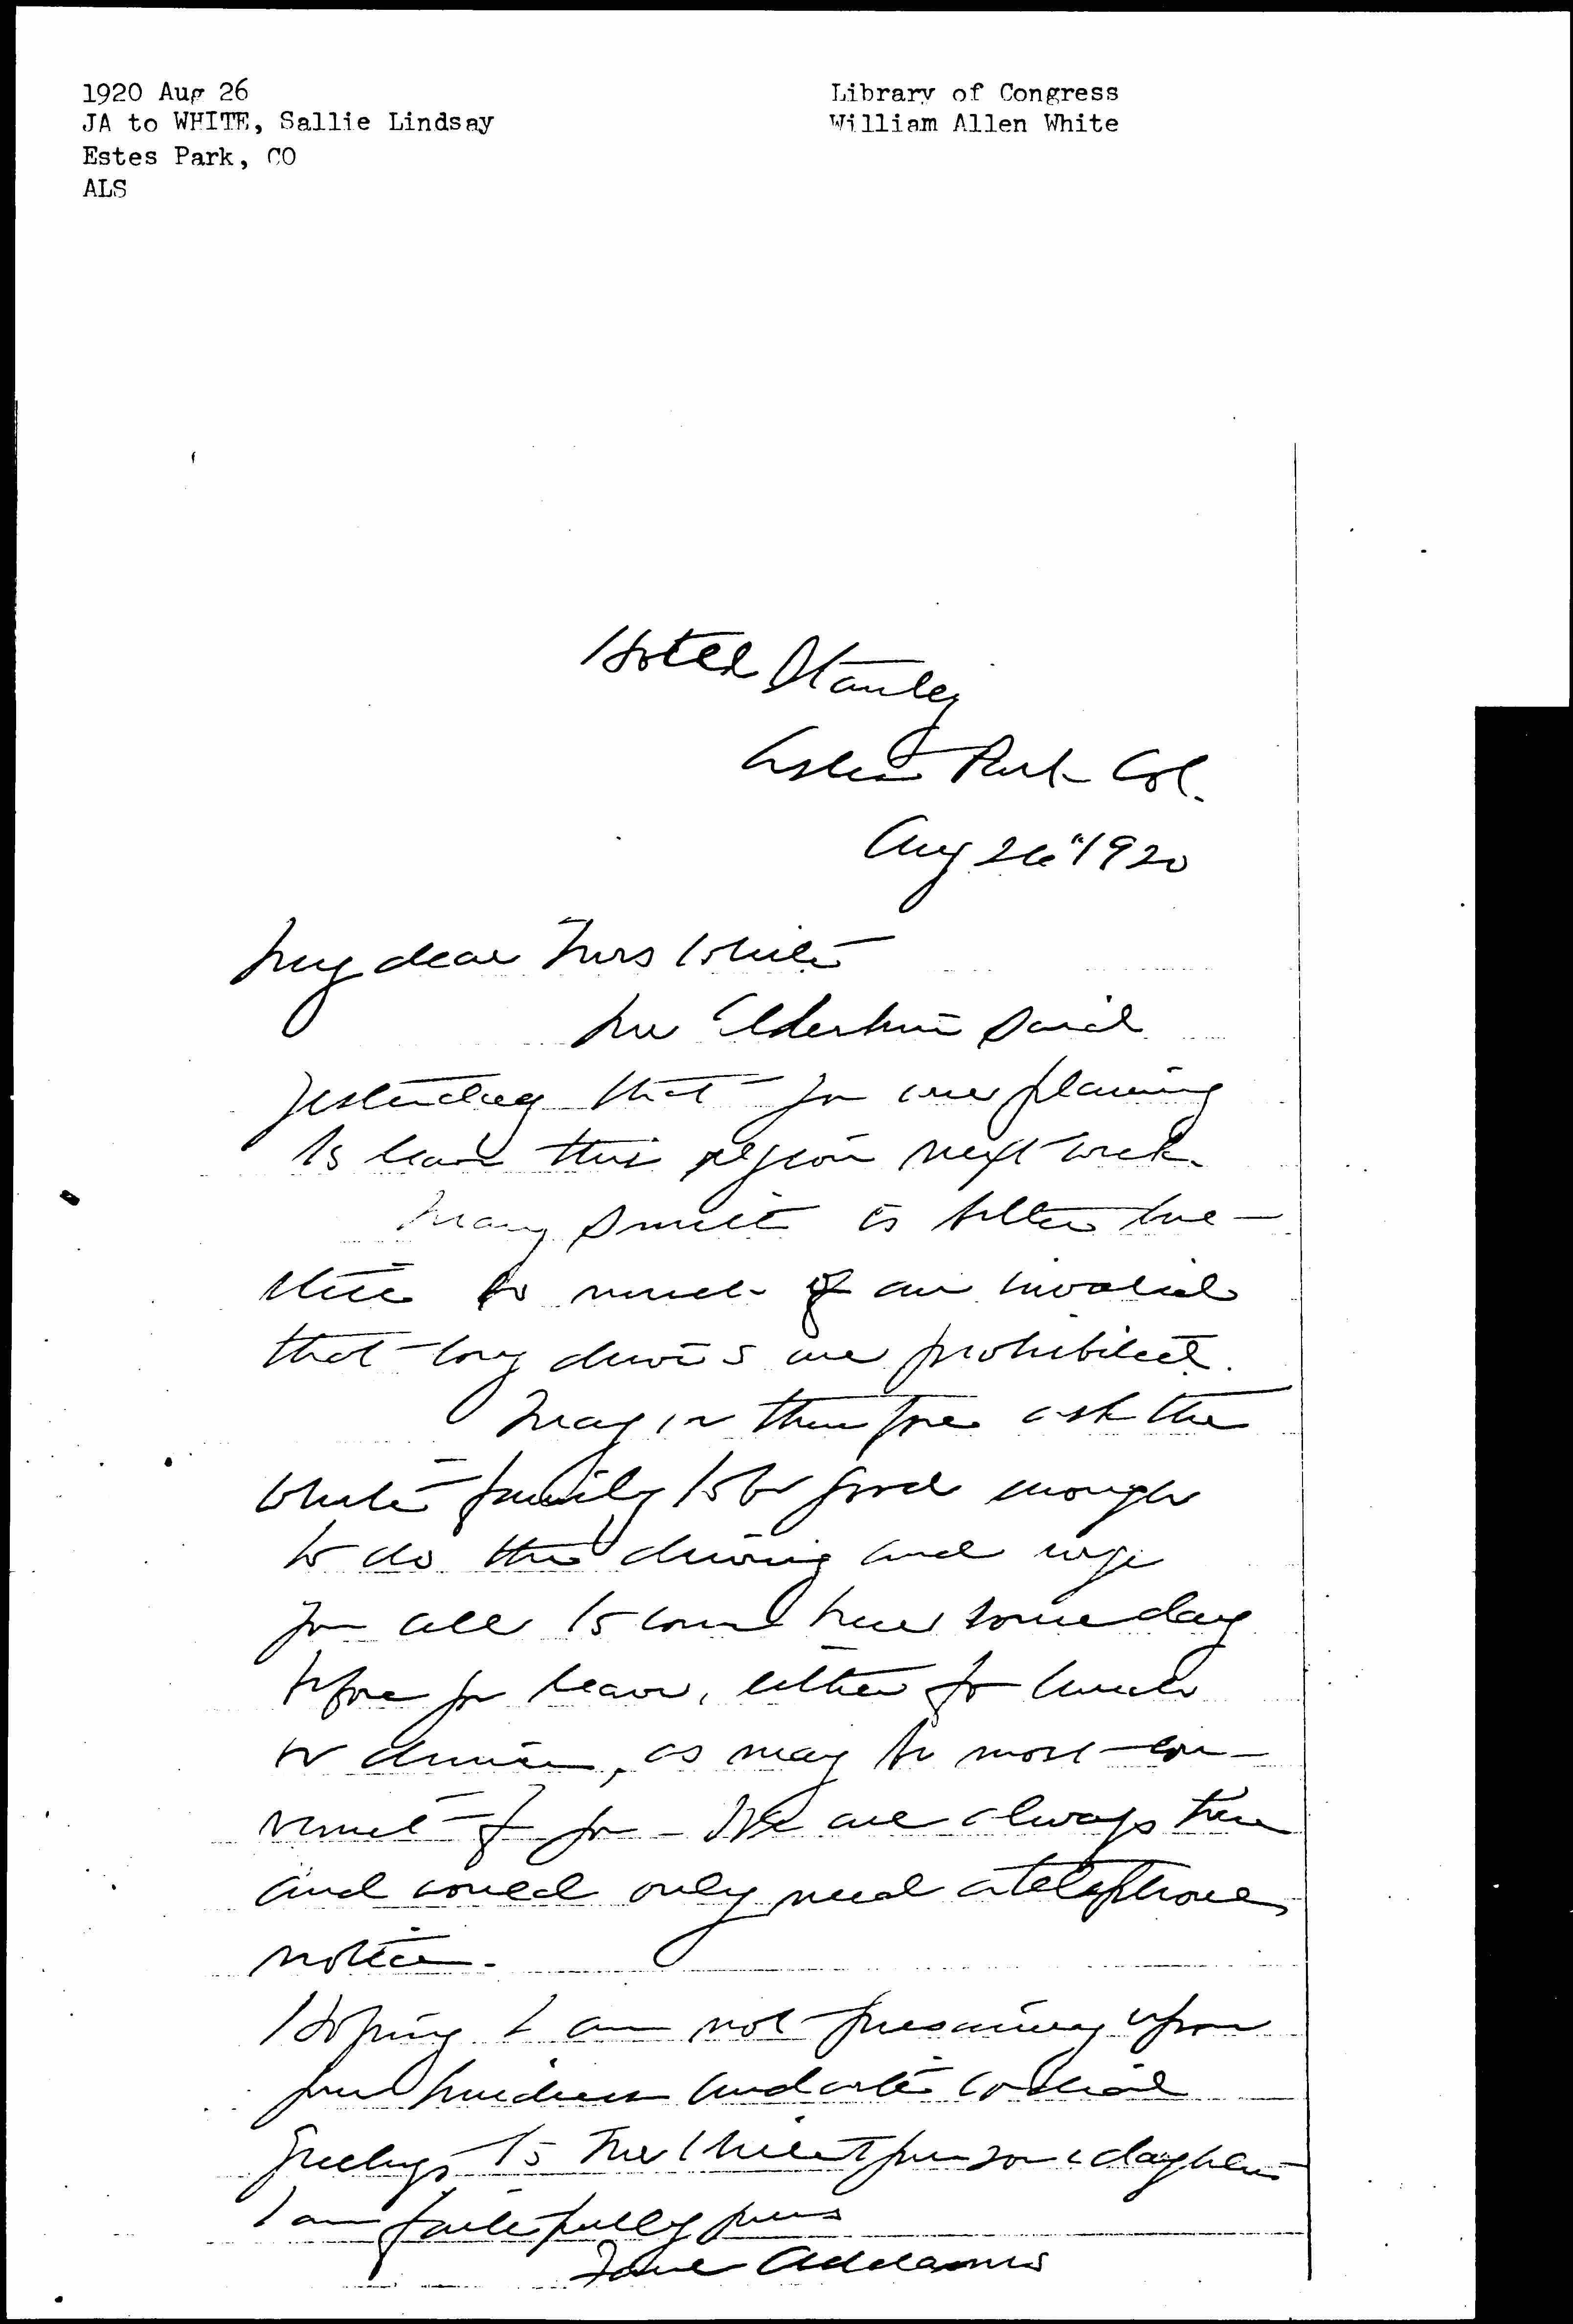 1920 Aug 26
JA to WHITE, Sallie Lindsay
Estes Park, CO
ALS
Library of Congress
William Allen White
Hotel Stanley
Estes Park Col.
Aug 26" 1920
My dear Mrs White
Mr said
yesterday that you were planning
to leave this region next week.
Mary Smith is better but
still so much of an invalid
that long drives are prohibited.
May we therefore ask the
White family to be good enough
to do the driving and urge
you all to come here some day
before you leave, either for lunch
or dinner, as may be most con-
venient for you - We are always here
and would only need a telephone
notice.
Hoping I am not presuming upon
your kindness and with cordial
greetings to Mr White & your son & daughter
I am faithfully yours
Jane Addams